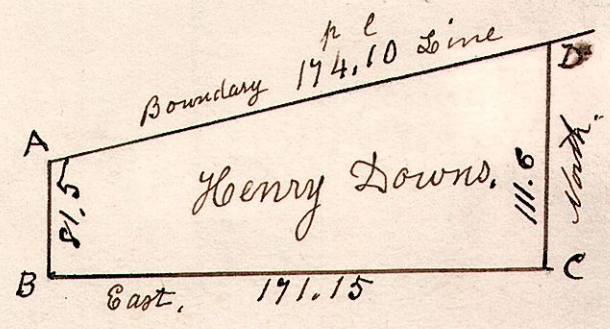 p l
Boundary 174.10 Line
D
A
81.5
Henry Downs.
111.6
North.
B
East, 171.15
C